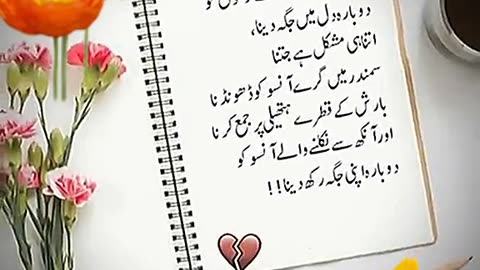 کو
دوبارہ دل میں جگہ دینا،
اتنا ہی مشکل ہے جتنا
سمندر میں گرے آنسو کو ڈھونڈنا
بارش کے قطرے ہتھیلی پر جمع کرنا
اور آنکھ سے نکلنے والے آنسو کو
دوبارہ اپنی جگہ رکھ دینا!!